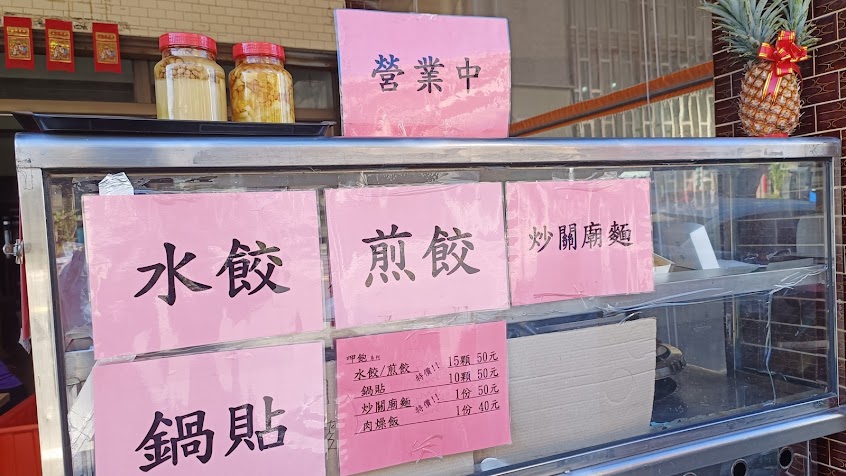 營業中
水餃
煎餃
炒關廟麵
鍋貼
呷飽
水餃/煎餃 特價!! 15顆 50元
鍋貼 10顆 50元
炒關廟麵 特價!! 1份 50元
肉燥飯 1份 40元